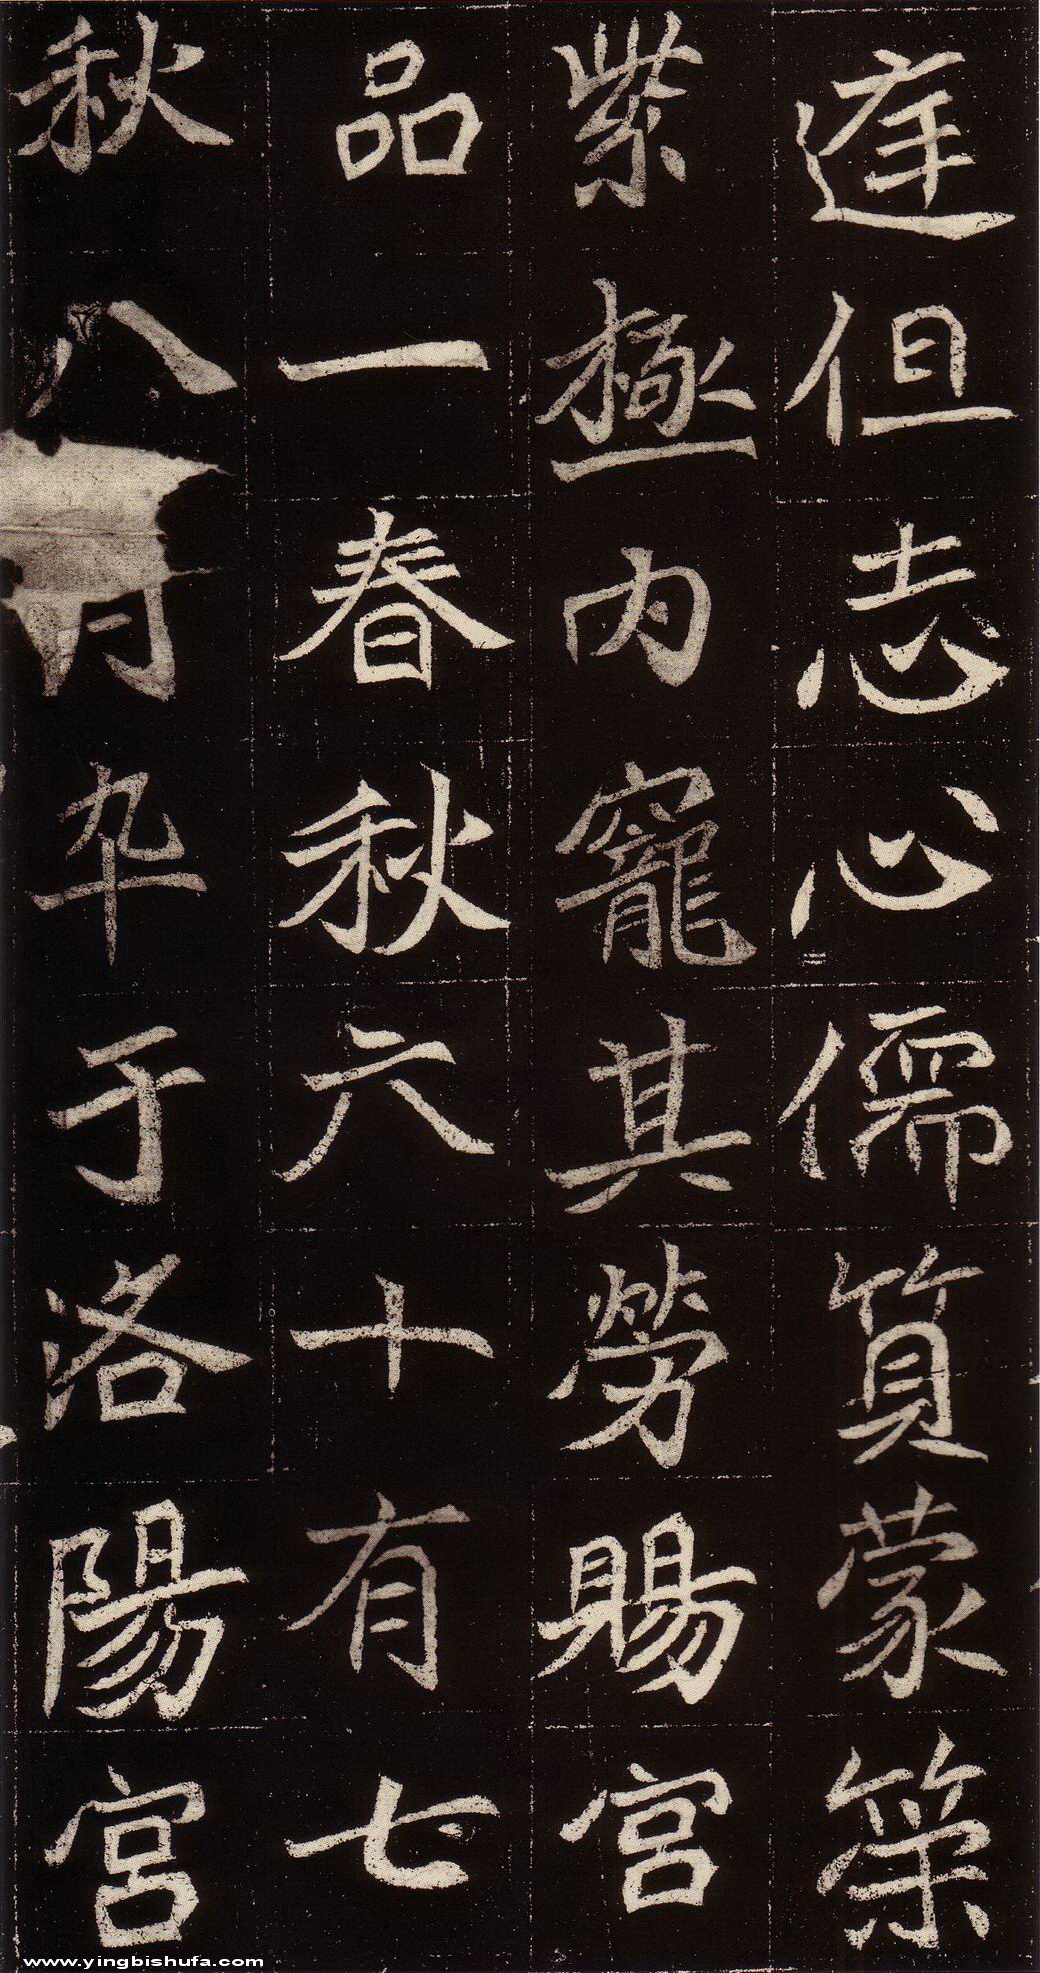 但志心儒質蒙策
紫極内寵其勞賜宮
品一春秋六十有七
秋八月卒于洛陽宮
www.yingbishufa.com